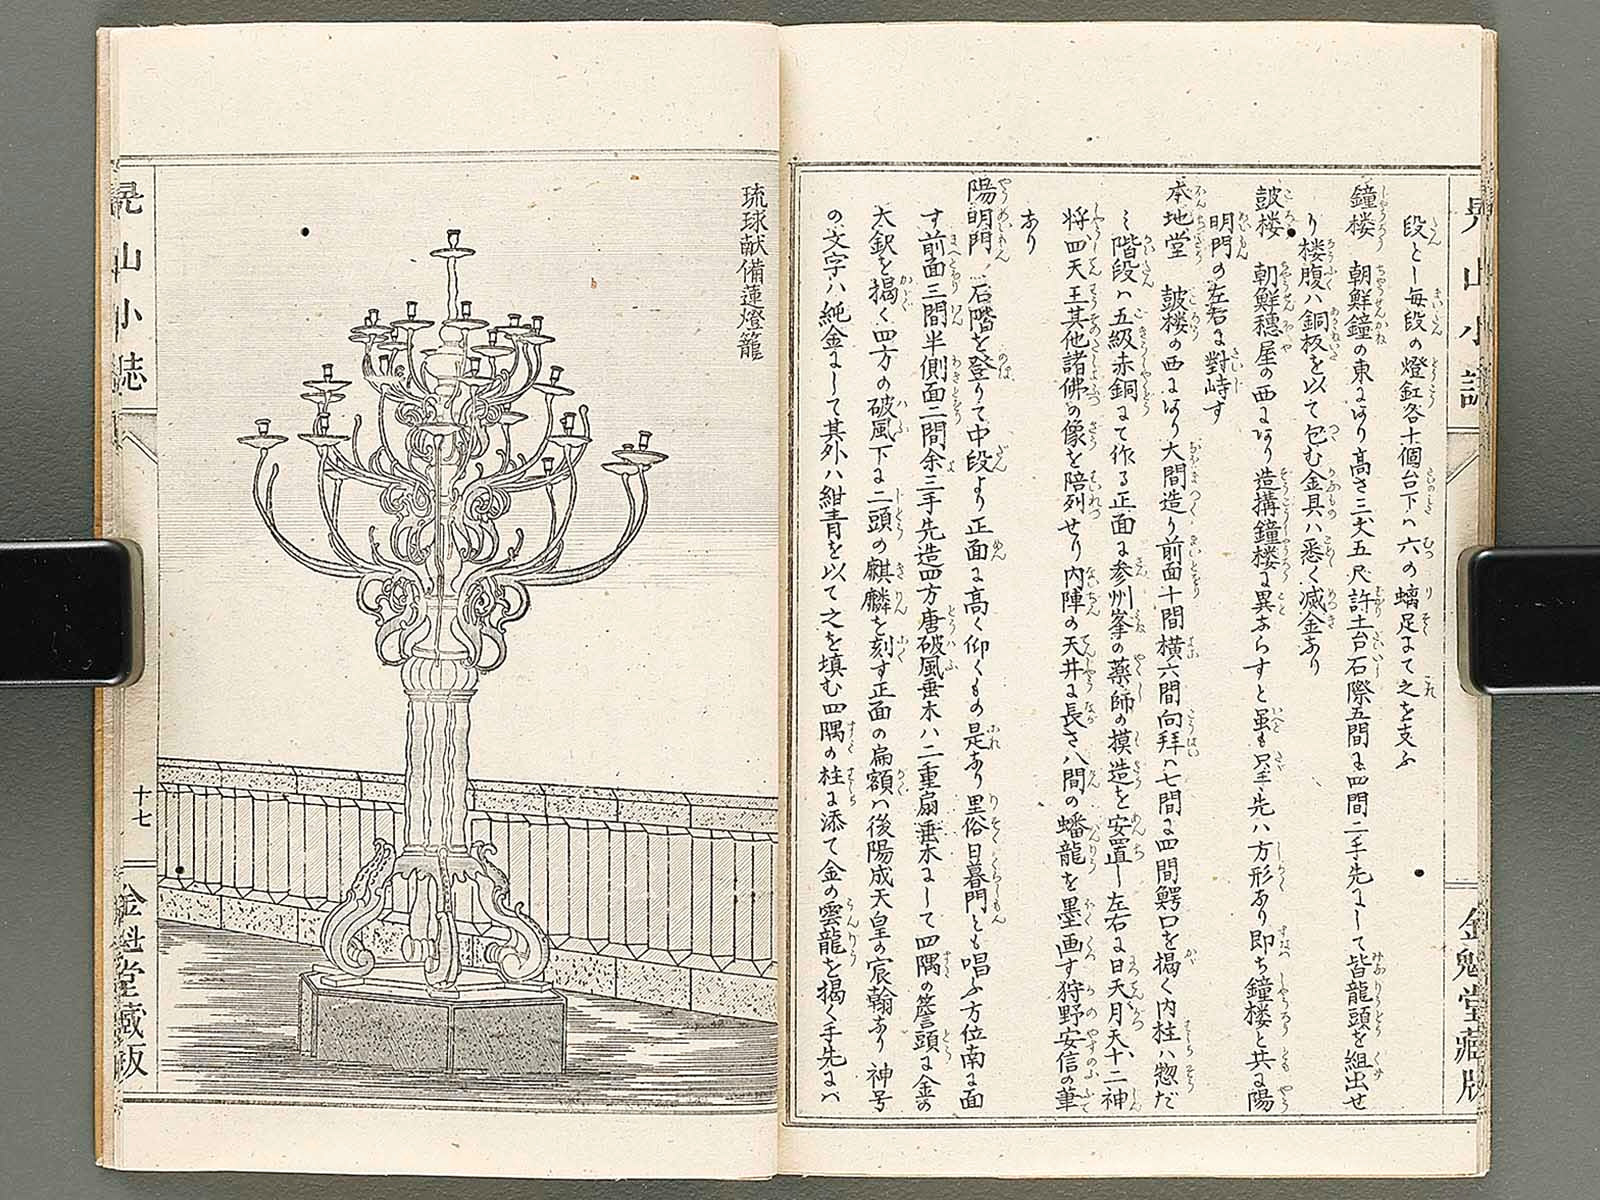 段とし毎段の燈釭各十個台下ハ六の螭足にて之を支ふ
鐘楼 朝鮮鐘の東にあり高さ三丈五尺許土台石際五間に四間二手先にして皆龍頭を組出せ
り楼腹ハ銅板を以て包む金具ハ悉く滅金なり
皷楼 朝鮮穗屋の西にあり造搆鐘楼に異ならすと虽も 先ハ方形なり即ち鐘楼と共に陽
明門の左右に對峙す
本地堂 皷楼の西にあり大間造り前面十間横六間向拜ハ七間に四間鰐口を掲く内柱ハ惣だ
み階段ハ五級赤銅にて作る正面に参州峯の薬師の摸造を安置し左右に日天月天十二神
将四天王其他諸佛の像を陪列せり内陣の天井に長さ八間の蟠龍を墨画す狩野安信の筆
なり
陽明門 石階を登りて中段より正面に高く仰くもの是なり里俗日暮門とも唱ふ方位南に面
す前面三間半側面二間余三手先造四方唐破風垂木ハ二重扇垂木にして四隅の簷頭に金の
太鈬を掲く四方の破風下に二頭の麒麟を刻す正面の扁額ハ後陽成天皇の宸翰なり神号
の文字ハ純金にして其外ハ紺青を以て之を填む四隅の柱に添て金の雲龍を掲く手先にハ
琉球献備蓮燈籠
晃山小誌
十七
金魁堂蔵版